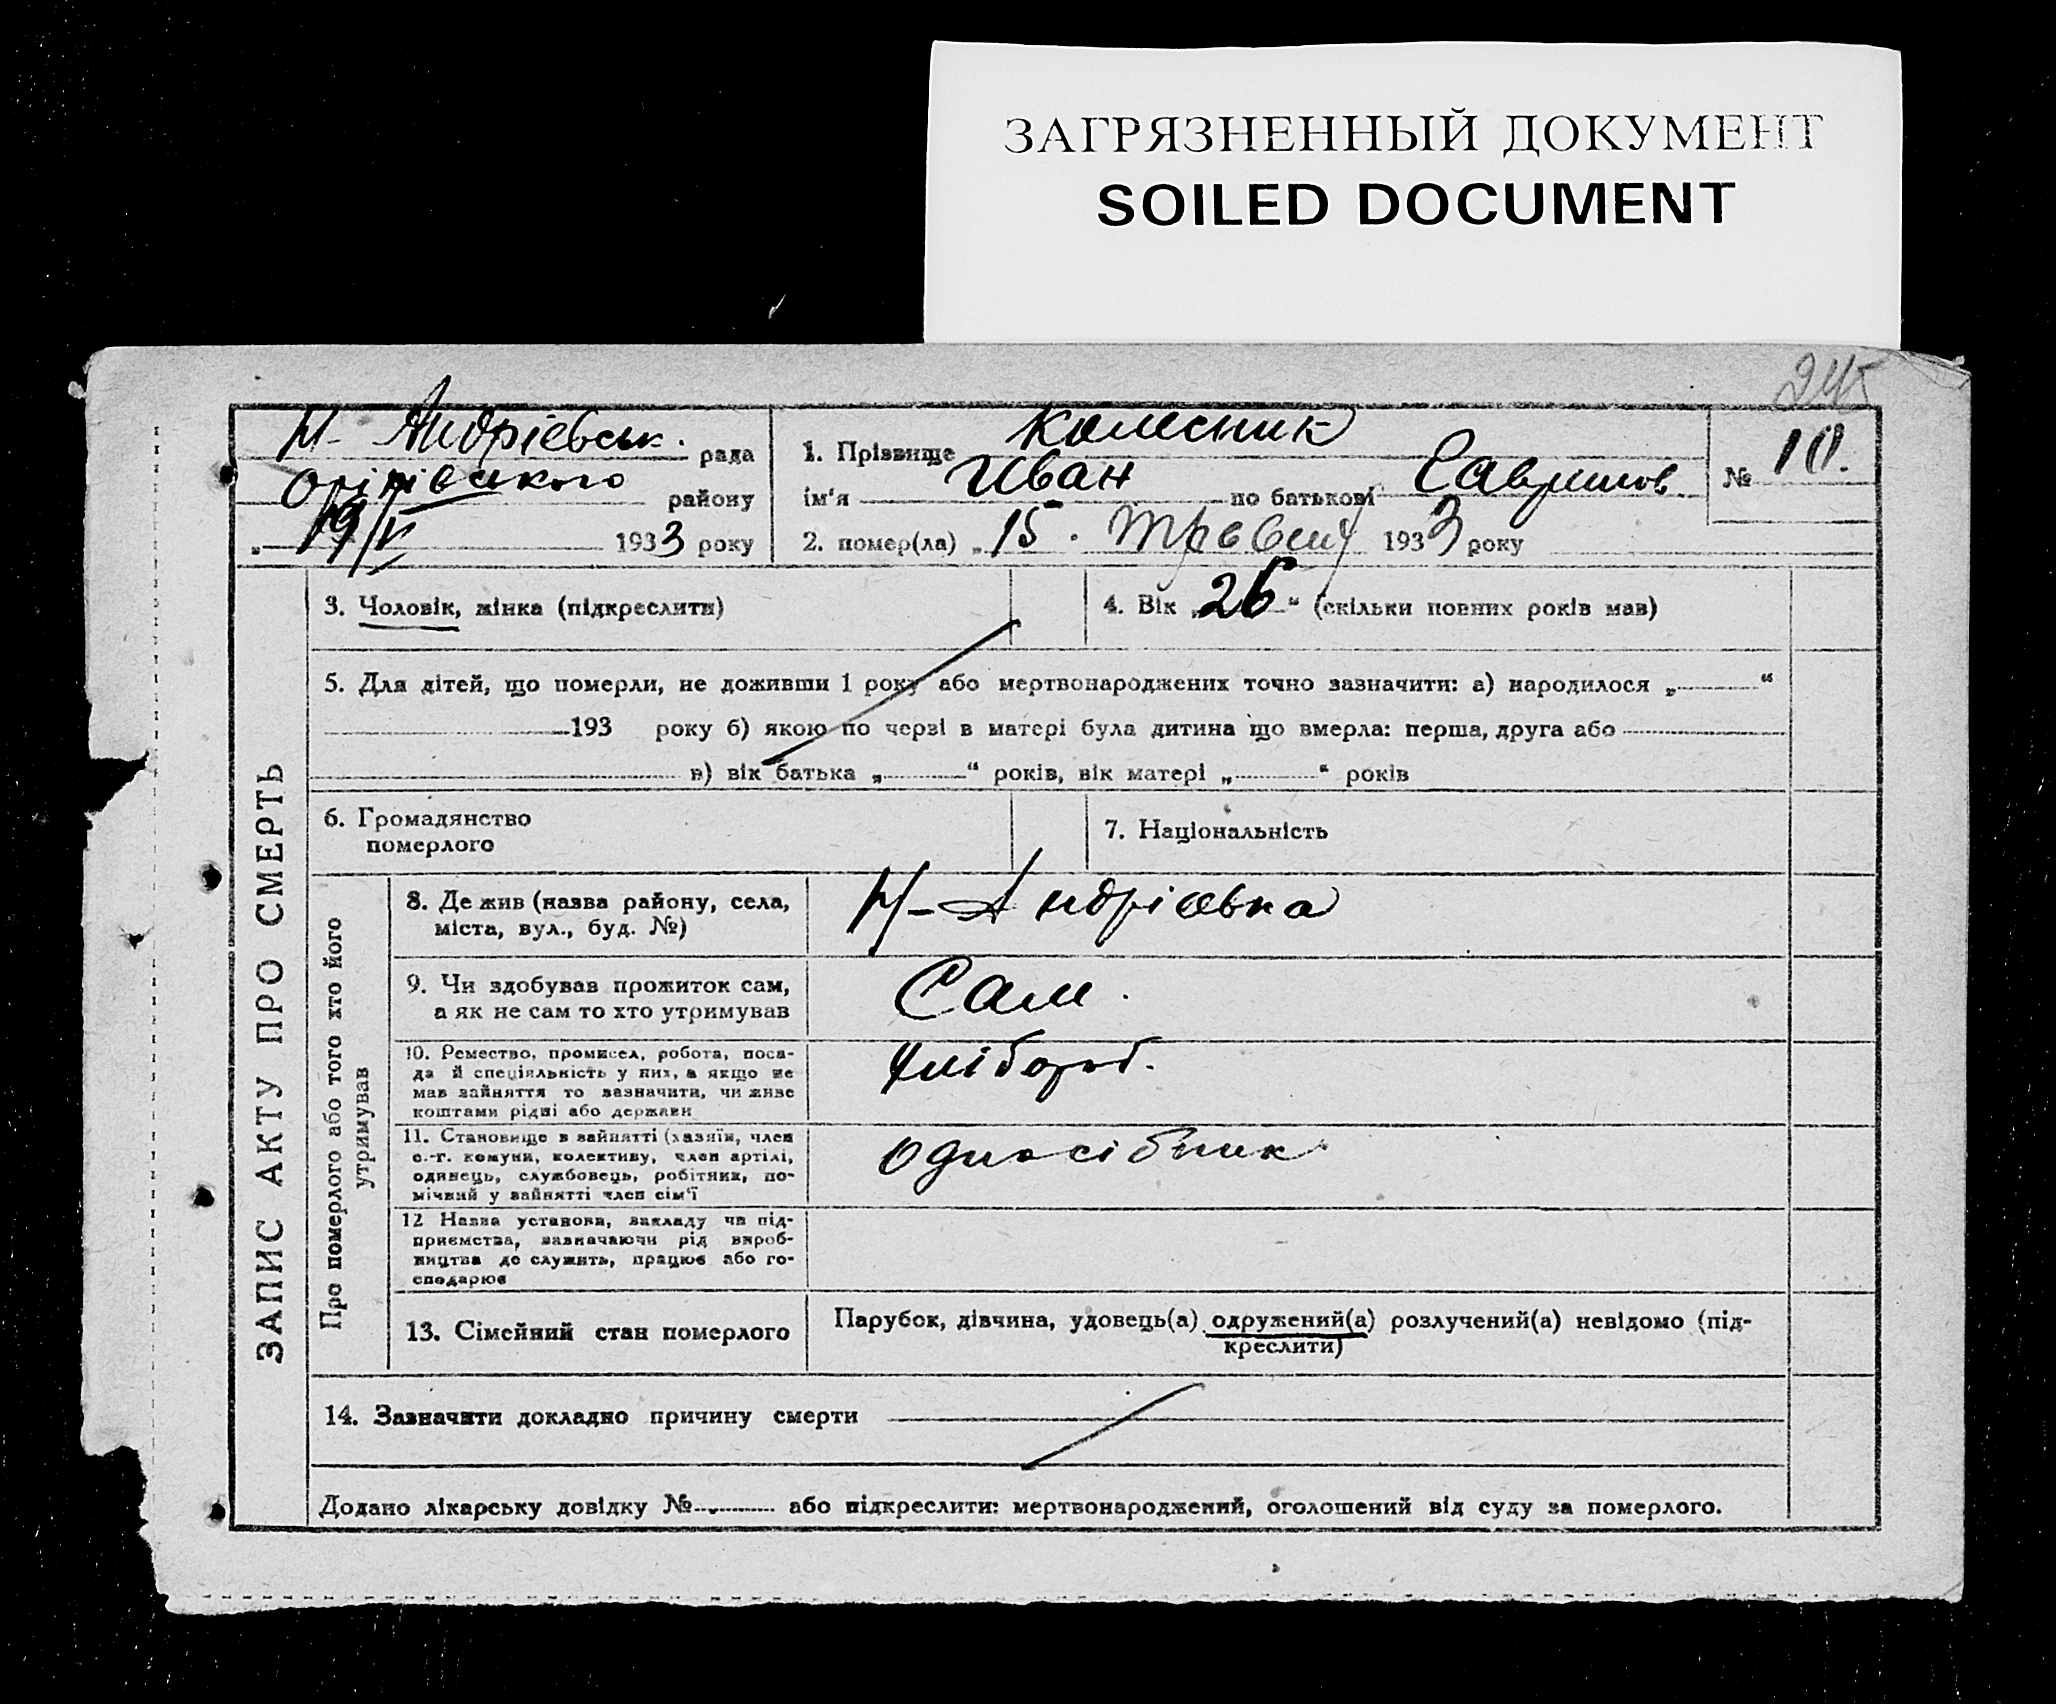 ЗАГРЯЗНЕННЫЙ ДОКУМЕНТ
SOILED DOCUMENT
245
Н-Андріевськ. рада
Оріхівського району
„ 19/V 1933 року
1. Прізвище Колесник
ім'я Иван по батькові
2. помер(ла) „15. Травня 1933 року
№ 10.
ЗАПИС АКТУ ПРО СМЕРТЬ
3. Чоловік, жінка (підкреслити)
4. Вік „26“ (скільки повних років мав)
5. Для дітей, що померли, не доживши 1 року або мертвонароджених точно зазначити: а) народилося „ “
193 року б) якою по черзі в матері була дитина що вмерла: перша, друга або
в) вік батька „ “ років, вік матері „ “ років
6. Громадянство
померлого
7. Національність
Про померлого або того хто його
утримував
8. Де жив (назва району, села,
міста, вул., буд. №)
Н-Андріевка
9. Чи здобував прожиток сам,
а як не сам то хто утримував
Сам.
10. Ремество, промисел, робота, поса-
да й спеціяльність у них, а якщо не
мав зайняття то зазначити, чи живе
коштами рідні або держави
Хлібороб.
11. Становище в зайнятті (хазяїн, член
с.-г. комуни, колективу, член артілі,
одинець, службовець, робітник, по-
мічний у зайнятті член сім'ї
Односібник
12 Назва установи, закладу чи під-
приємства, зазначаючи рід вироб-
ництва де служить, працює або го-
сподарює
13. Сімейний стан померлого
Парубок, дівчина, удовець(а) одружений(а) розлучений(а) невідомо (під-
креслити)
14. Зазначити докладно причину смерти
Додано лікарську довідку № або підкреслити: мертвонароджений, оголошений від суду за померлого.